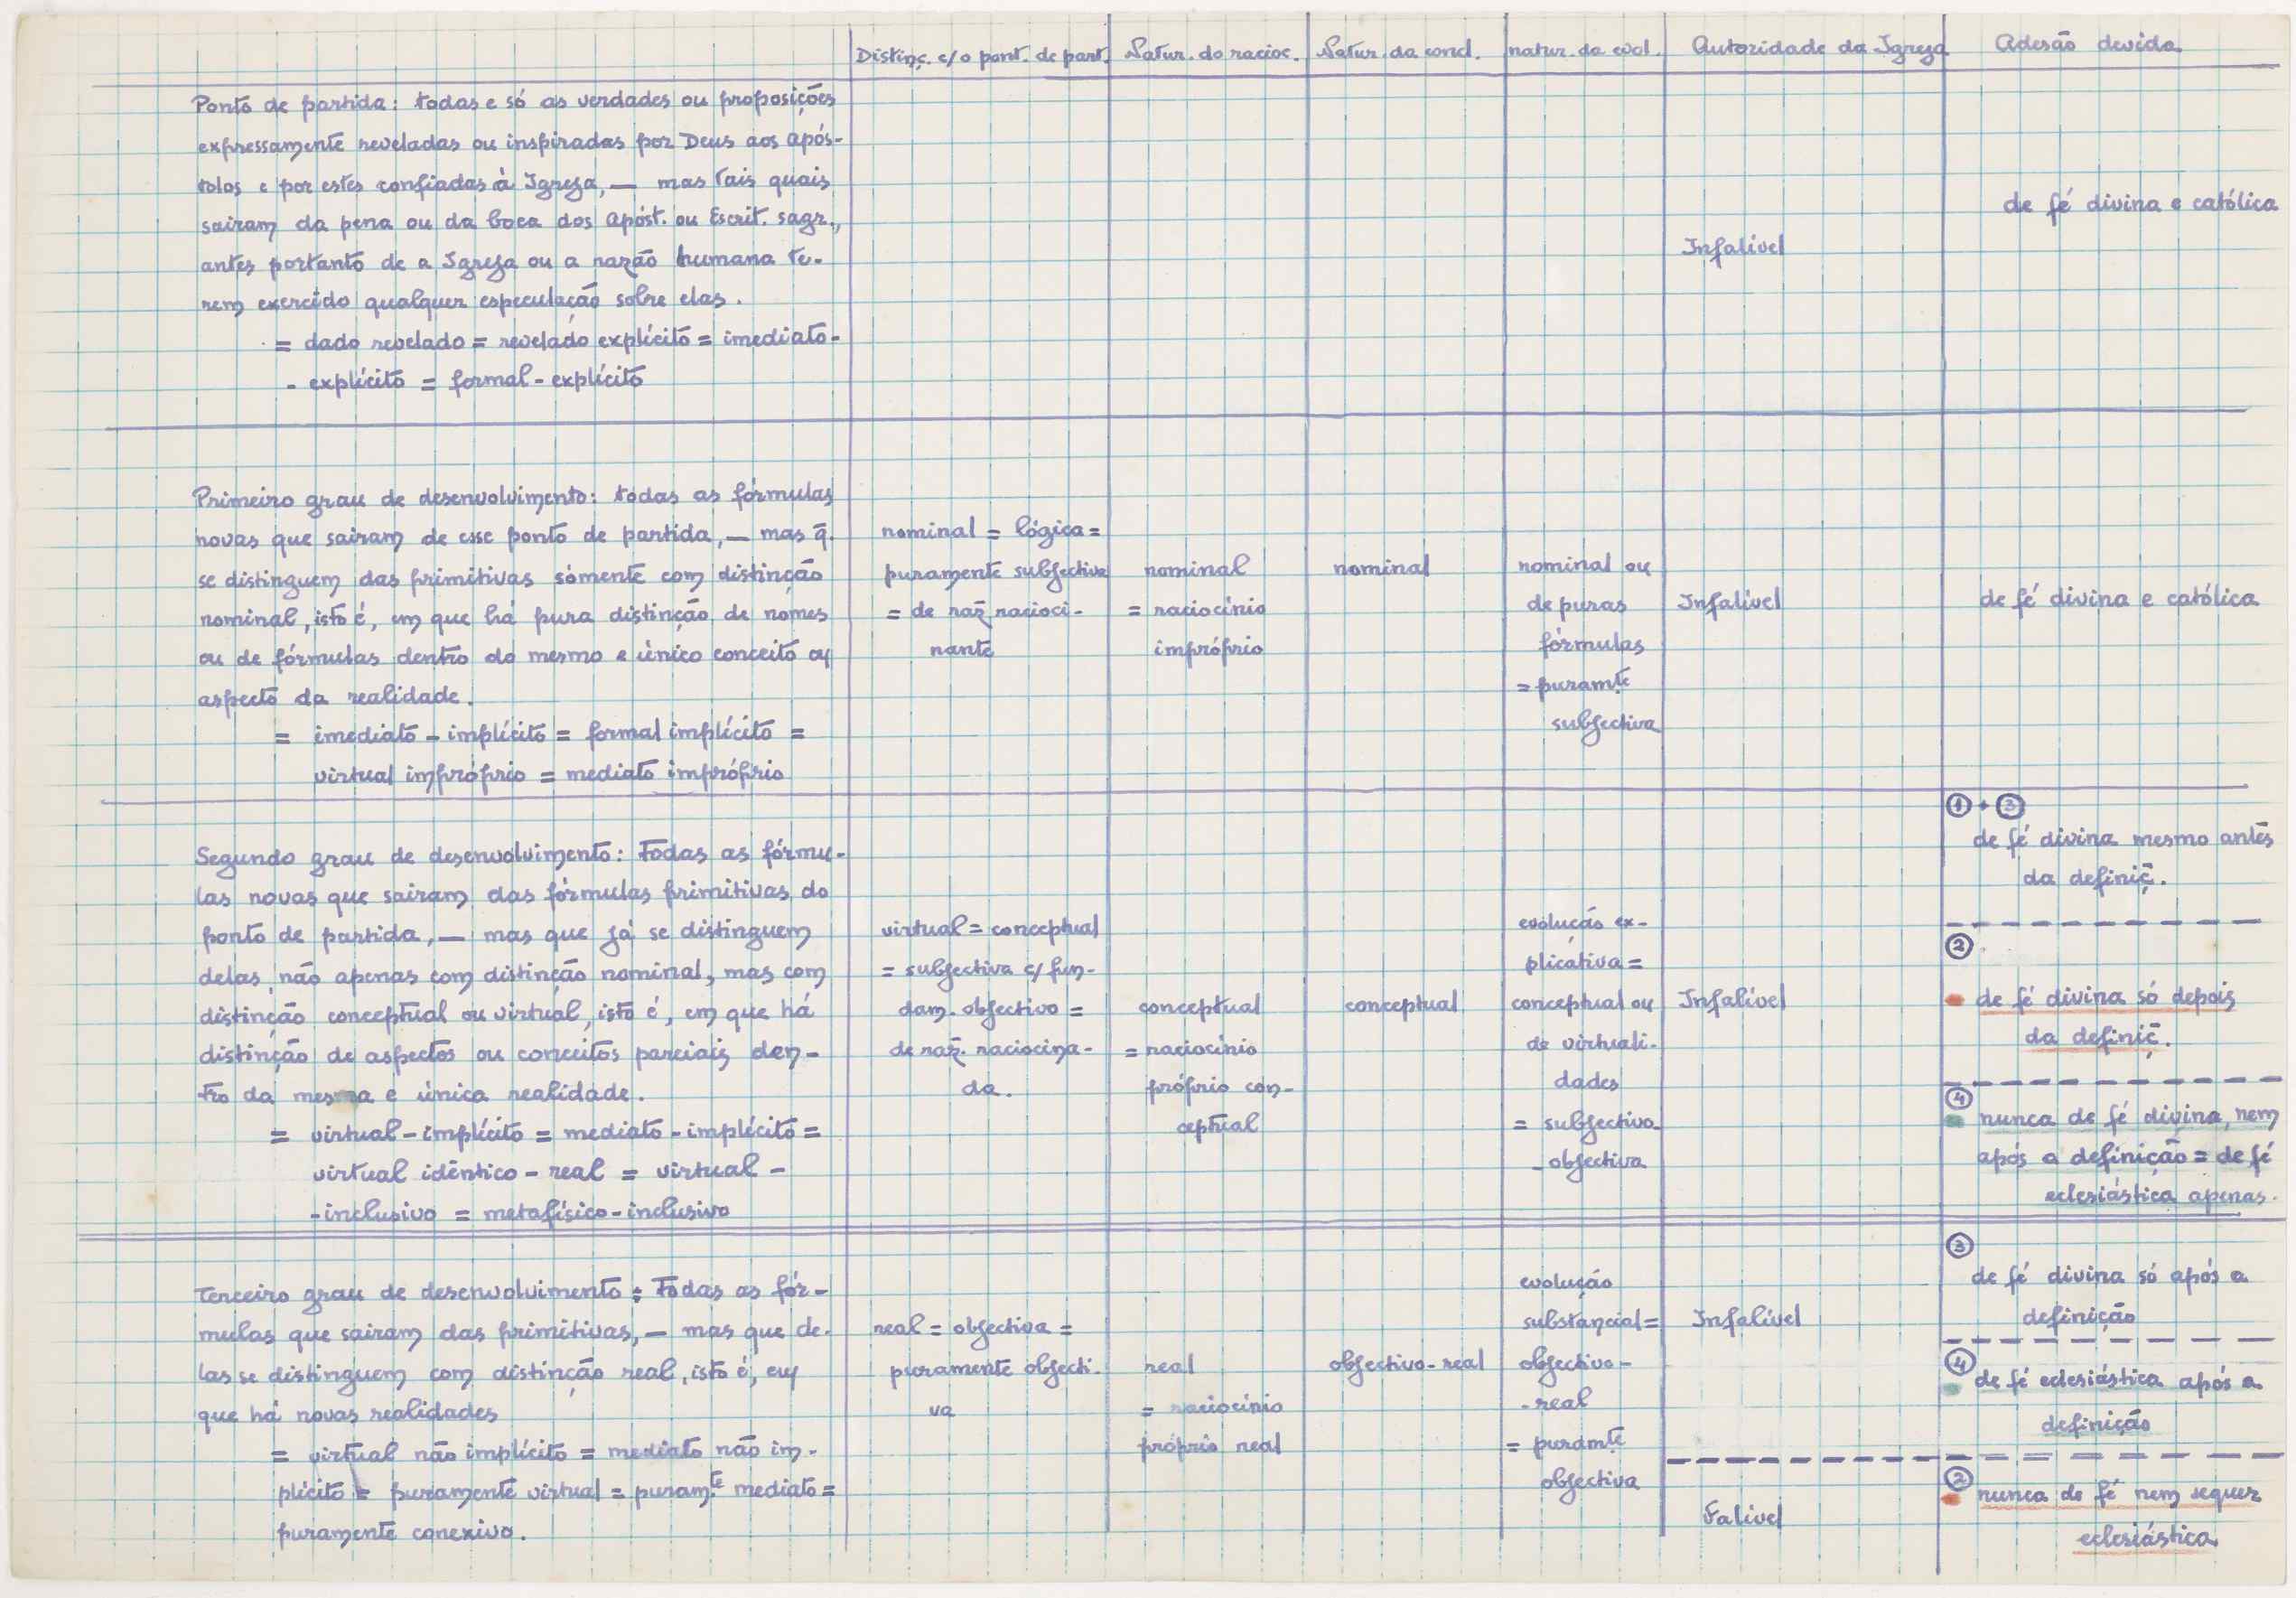 Distinç. c/o pont. de part. Natur. do racioc. Natur. da concl. natur. da evol. Autoridade da Igreja Adesão devida
Ponto de partida: todas e só as verdades ou proposições
expressamente reveladas ou inspiradas por Deus aos após-
tolos e por estes confiadas à Igreja, — mas tais quais
sairam da pena ou da boca dos Apóst. ou Escrit. sagr.,
antes portanto de a Igreja ou a razão humana te-
rem exercido qualquer especulação sobre elas.
= dado revelado = revelado explícito = imediato-
- explícito = formal-explícito
Infalível
de fé divina e católica
Primeiro grau de desenvolvimento: todas as fórmulas
novas que sairam de esse ponto de partida, — mas q̄.
se distinguem das primitivas sòmente com distinção
nominal, isto é, em que há pura distinção de nomes
ou de fórmulas dentro do mesmo e único conceito ou
aspecto da realidade.
= imediato-implícito = formal implícito =
virtual impróprio = mediato impróprio
nominal = lógica =
puramente subjectiva
= de raz̄ racioci-
nante
nominal
= raciocínio
impróprio
nominal
nominal ou
de puras
fórmulas
= puramte
subjectiva
Infalível
de fé divina e católica
Segundo grau de desenvolvimento: Todas as fórmu-
las novas que sairam das fórmulas primitivas do
ponto de partida, — mas que já se distinguem
delas, não apenas com distinção nominal, mas com
distinção conceptual ou virtual, isto é, em que há
distinção de aspectos ou conceitos parciais den-
tro da mesma e única realidade.
= virtual-implícito = mediato-implícito =
virtual idêntico-real = virtual-
-inclusivo = metafísico-inclusivo
virtual = conceptual
= subjectiva c/ fun-
dam. objectivo =
de raz̄. raciocina-
da.
conceptual
= raciocínio
próprio con-
ceptual
conceptual
evolução ex-
plicativa =
conceptual ou
de virtuali-
dades
= subjectivo-
-objectiva
Infalível
① + ③
de fé divina mesmo antes
da definiç̄.
②
de fé divina só depois
da definiç̄.
④
nunca de fé divina, nem
após a definição = de fé
eclesiástica apenas.
Terceiro grau de desenvolvimento: Todas as fór-
mulas que sairam das primitivas, — mas que de-
las se distinguem com distinção real, isto é, em
que há novas realidades
= virtual não implícito = mediato não im-
plícito = puramente virtual = puram.te mediato =
puramente conexivo.
real = objectiva =
puramente objecti-
va
real
= raciocínio
próprio real
objectivo-real
evolução
substancial =
objectivo-
-real
= puramte
objectiva
Infalível
Falível
③
de fé divina só após a
definição
④
de fé eclesiástica após a
definição
②
nunca de fé nem sequer
eclesiástica